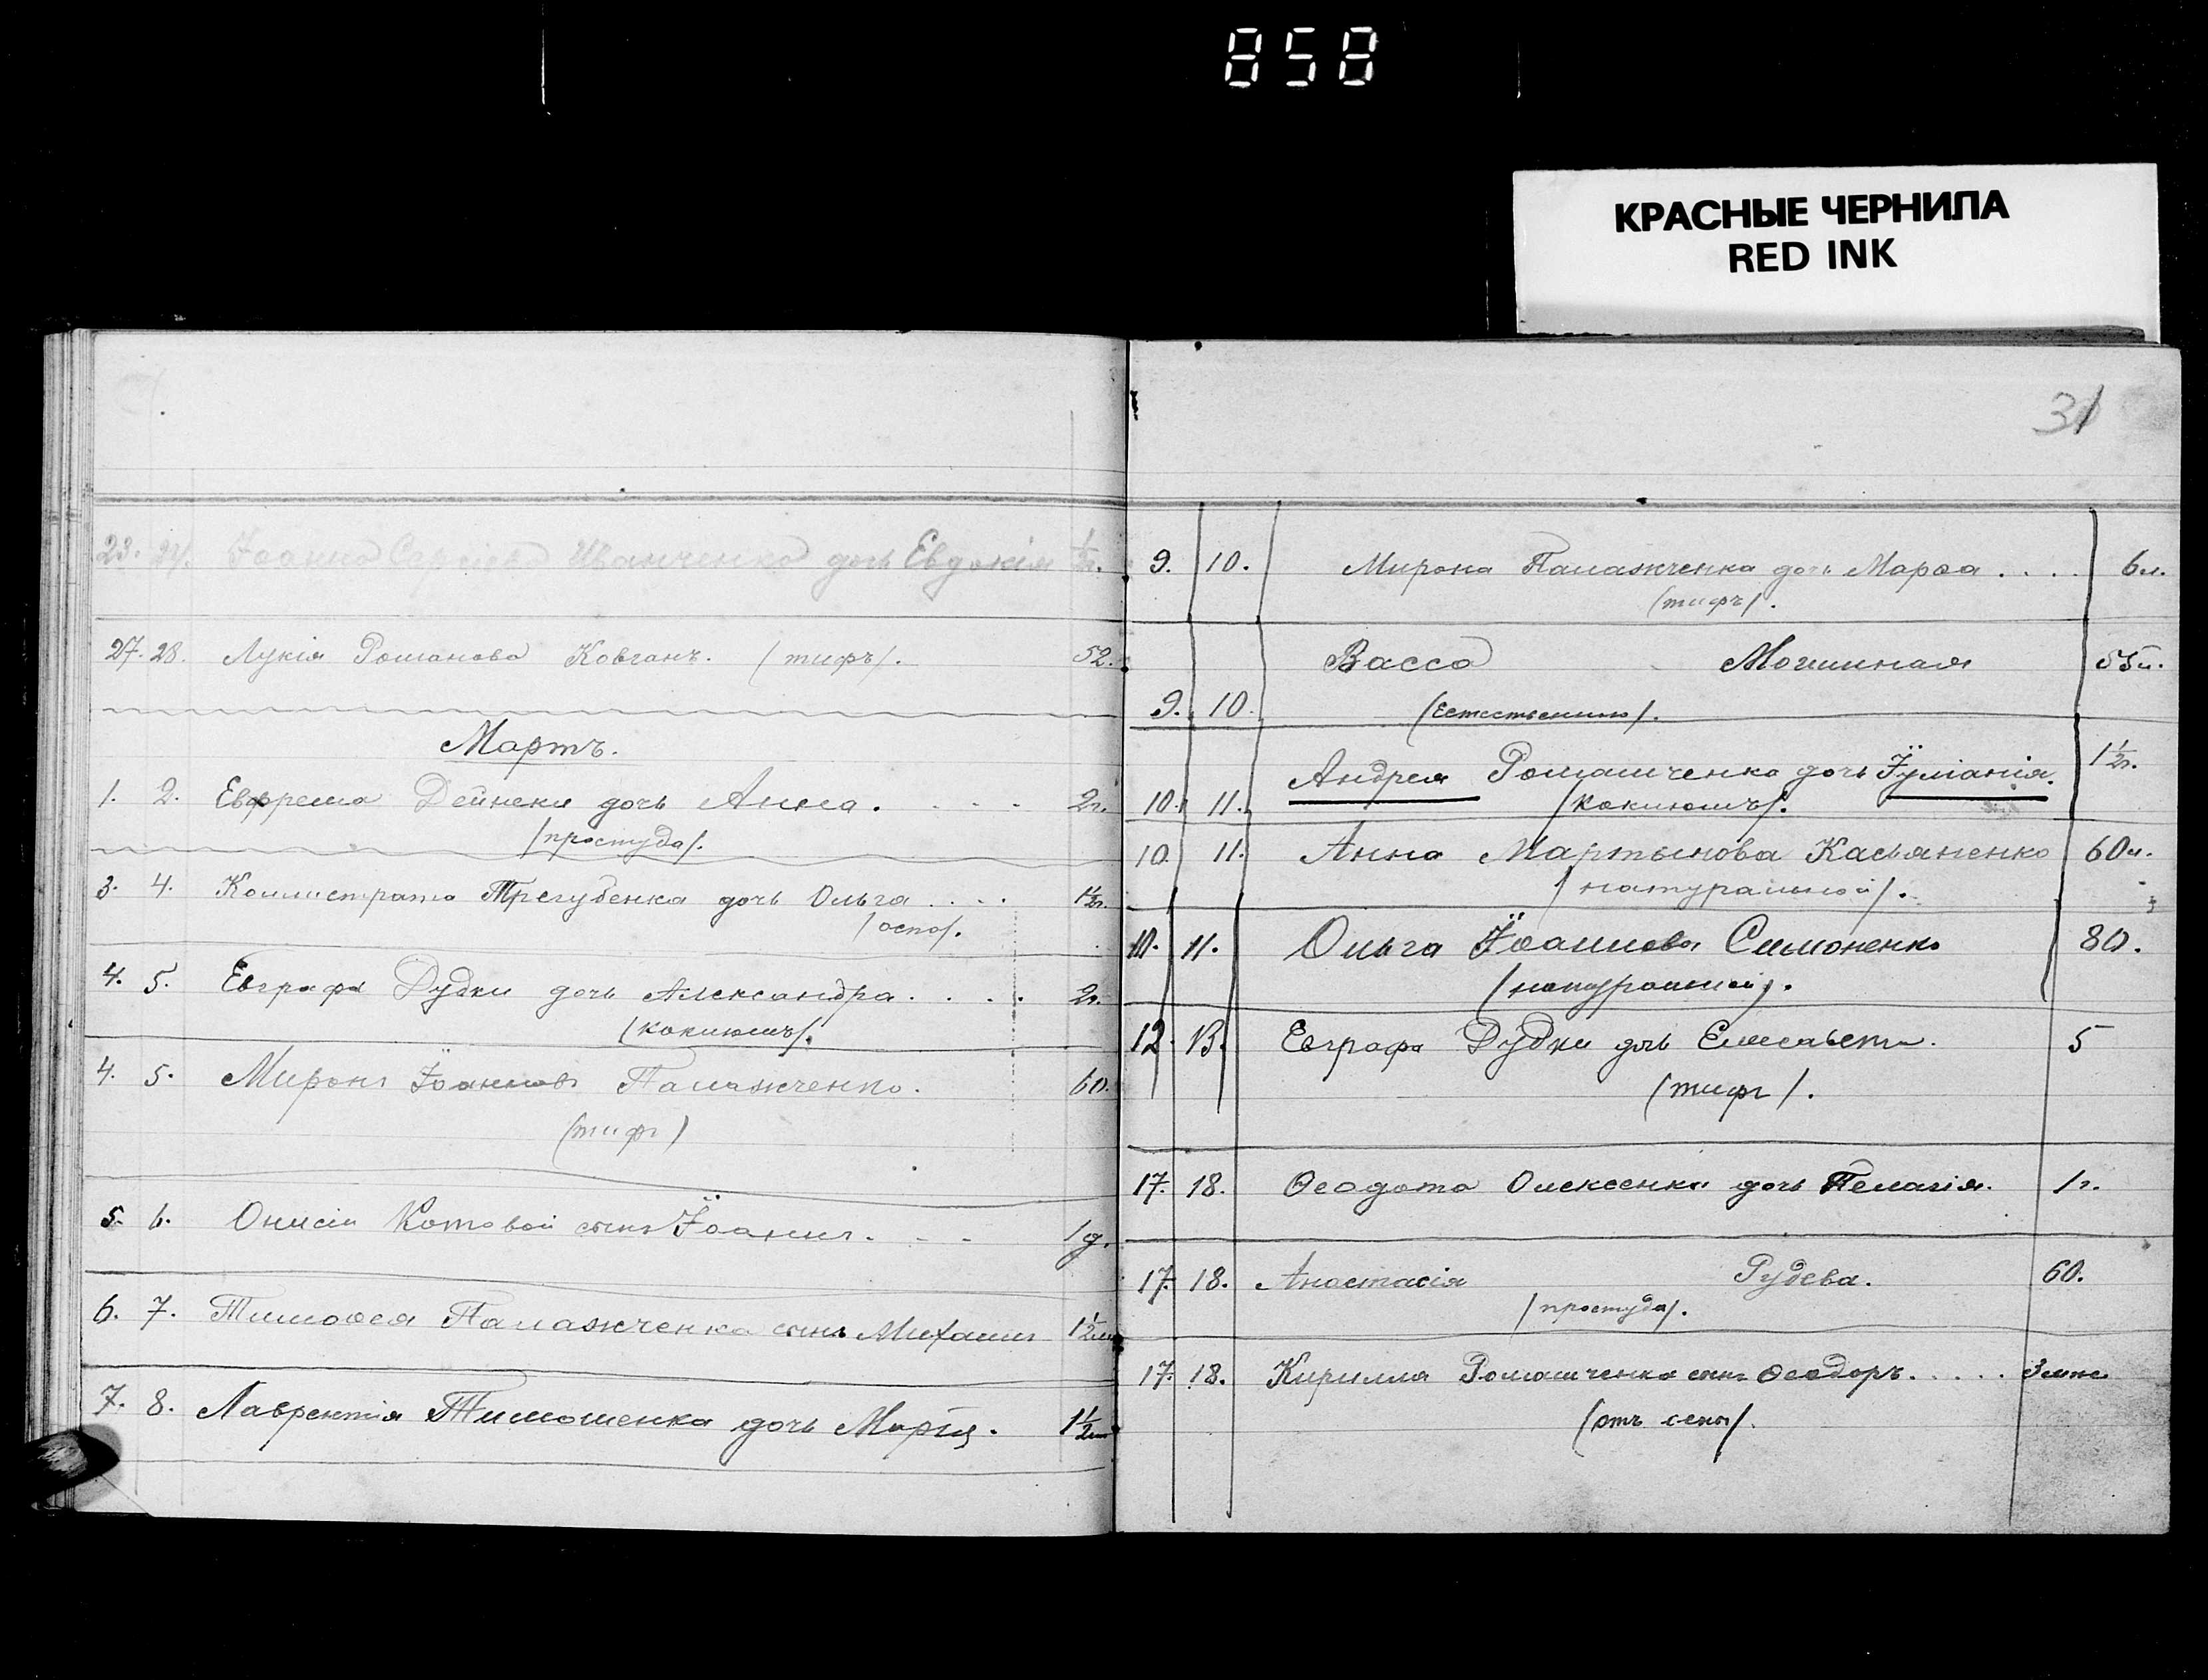 858
КРАСНЫЕ ЧЕРНИЛА
RED INK
23. 24. Іоанна Сергіева Иванченка дочь Евдокія ½г.
27. 28. Лукія Романова Ковганъ. /тифъ/. 52.
Мартъ.
1. 2. Евфрема Дейнеки дочь Анна. . . . . 2г.
/простуда/.
3. 4. Коллистрата Трегубенка дочь Ольга . . . . 1½г.
/оспа/.
4. 5. Евграфа Дудки дочь Александра. . . . . 2г.
/коклюшъ/.
4. 5. Миронъ Іоанновъ Палажченко. 60.
(тифъ)
5. 6. Онисіи Котовой сынъ Іоаннъ. . . . 1д.
6. 7. Тимоѳея Палажченка сынъ Михаилъ 1½
7. 8. Лаврентія Тимошенка дочь Марія. 1½
31
9. 10. Мирона Палажченка дочь Марѳа . . . . 6л.
(тифъ/.
Васса Могильная 55л.
9. 10. (Естественно/.
Андрея Ромашченка дочь Іуліанія. 1½г.
10. 11. /коклюшъ/.
10. 11. Анна Мартынова Касьяненко 60л.
/натуральной/.
10. 11. Ольга Іоаннова Симоненко 80.
(натуральной).
12. 13. Евграфа Дудки дочь Елисавета. 5
(тифъ/.
17. 18. Ѳеодота Олексенка дочь Пелагія. 1г.
17. 18. Анастасія Рудева. 60.
/простуда/.
17. 18. Кирилла Ромашченка сынъ Ѳеодоръ. . . . . 3
(отъ